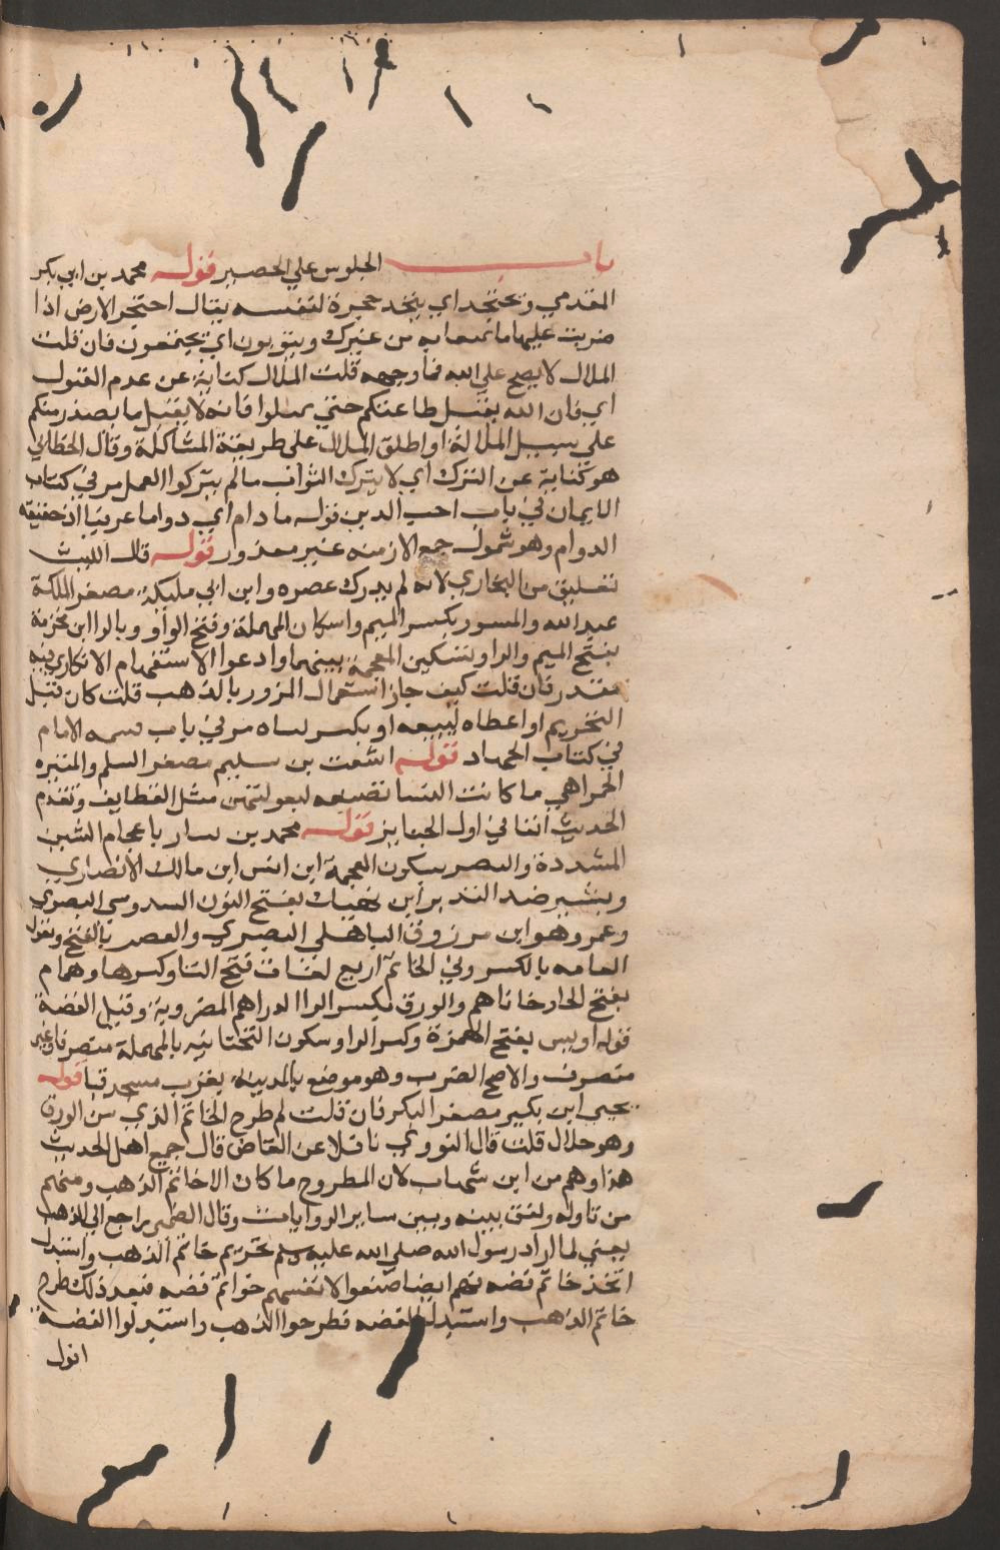 باب الجلوس علي الحصير قوله محمد بن ابي بكر
المقدمي ويحتجر اي يتخذ حجرة لنفسه يقال احتجر الارض اذا
ضربت عليها ما تمنعها به من غيرك ويثوبون اي يجتمعون فان قلت
الملال لا يصح علي الله فما وجهه قلت الملال كناية عن عدم القبول
اي فان الله يقبل طاعتكم حتي تملوا فانه لا يقبل ما يصدر منكم
علي سبيل الملالة او اطلق الملال علي طريقة المشاكلة وقال الخطابي
هو كناية عن الترك اي لا يترك الثواب ما لم يتركوا العمل مر في كتاب
الايمان في باب احب الدين قوله ما دام اي دواما عرفيا اذ حقيقة
الدوام وهو شمول جمع الازمنه غير مقدور قوله قال الليث
تعليق من البخاري لانه لم يدرك عصره وابن ابي مليكة مصغر الملكة
عبد الله والمسور بكسر الميم واسكان المهملة وفتح الواو وبالرا ابن مخرمة
بفتح الميم والرا وتسكين المعجمة بينهما وادعوا الاستفهام الانكاري فيه
مقدر فان قلت كيف جاز استعمال المزرور بالذهب قلت كان قبل
التحريم او اعطاه ليبيعه او يكسر لساه مر في باب قسمه الامام
في كتاب الجهاد قوله اشعث بن سليم مصغر السلم والميثره
الحمرا هي ما كانت النسا تصنعه لبعولتهن مثل القطايف وتقدم
الحديث انفا في اول الجنايز قوله محمد بن بسار باعجام الشين
المشددة والنضر بسكون المعجمة ابن انس ابن مالك الانصاري
وبشير ضد النذير ابن نهيك بفتح النون السدوسي البصري
وعمرو هو ابن مرزوق الباهلي البصري والفص بالفتح وتقول
العامه بالكسر وفي الخاتم اربع لغات فتح التا وكسرها وهما م
بفتح الحا وخاتاهم والورق بكسر الرا الدراهم المضروبة وقيل الفضة
قوله اريس بفتح الهمزة وكسر الرا وسكون التحتانيه بالمهملة منصرفا وغير
منصرف والاصح الصرف وهو موضع بالمدينه بقرب مسجد قبا قوله
يحيى ابن بكير مصغر البكر فان قلت لم طرح الخاتم الذي من الورق
وهو حلال قلت قال النووي ناقلا عن القاضي قال جميع اهل الحديث
هذا وهم من ابن شهاب لان المطروح ما كان الا خاتم الذهب ومنهم
من تاوله ولفق بينه وبين ساير الروايات وقال الضمير راجع الي الذهب
يعني لما اراد رسول الله صلي الله عليه وسلم تحريم خاتم الذهب واستبدل
اتخذ خاتم فضه فهم ايضا صنعوا لانفسهم خواتم فضه فبعد ذلك طرح
خاتم الذهب واستبدل الفضه فطرحوا الذهب واستبدلوا الفضه
اقول